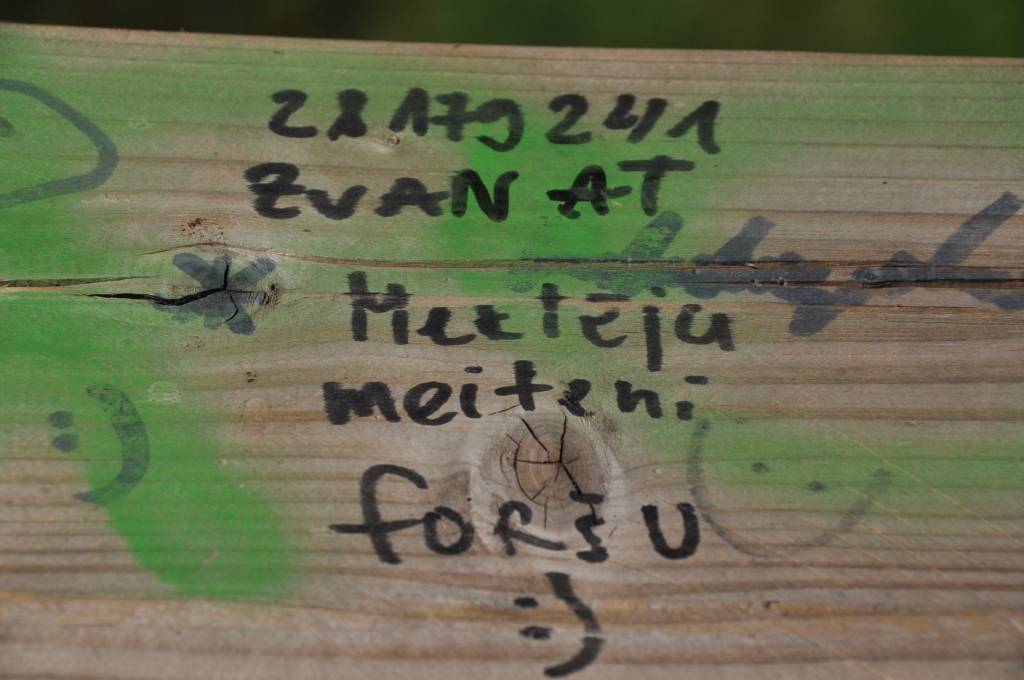 28179241
ZVANĀT
Meklēju
meiteni
foršu
:)
:)